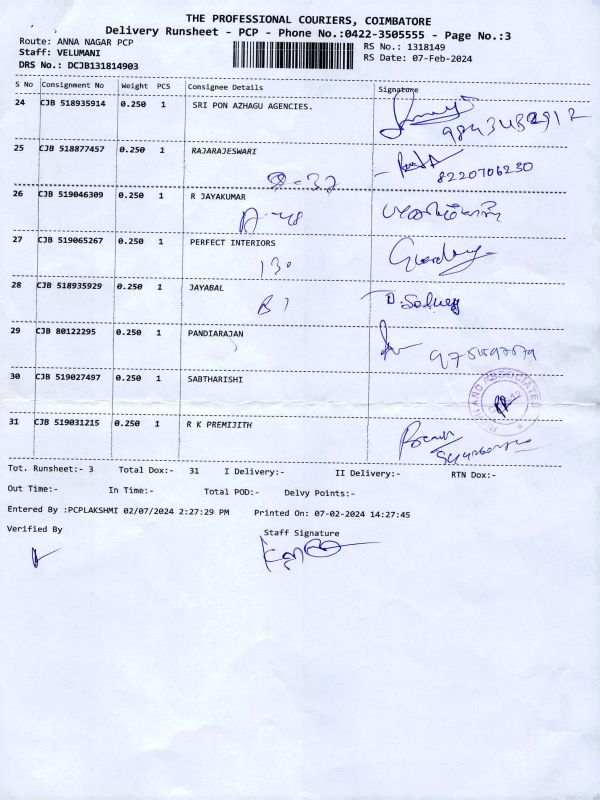 THE PROFESSIONAL COURIERS, COIMBATORE
Delivery Runsheet - PCP - Phone No.:0422-3505555 - Page No.:3
Route: ANNA NAGAR PCP
RS No.: 1318149
Staff: VELUMANI
RS Date: 07-Feb-2024
DRS No.: DCJB131814903
S No Consignment No Weight PCS Consignee Details Signature
24 CJB 518935914 0.250 1 SRI PON AZHAGU AGENCIES.
25 CJB 518877457 0.250 1 RAJARAJESWARI
8220706230
26 CJB 519046309 0.250 1 R JAYAKUMAR
27 CJB 519065267 0.250 1 PERFECT INTERIORS
130
28 CJB 518935929 0.250 1 JAYABAL
29 CJB 80122295 0.250 1 PANDIARAJAN
30 CJB 519027497 0.250 1 SABTHARISHI
31 CJB 519031215 0.250 1 R K PREMIJITH
Tot. Runsheet:- 3 Total Dox:- 31 I Delivery:- II Delivery:- RTN Dox:-
Out Time:- In Time:- Total POD:- Delvy Points:-
Entered By :PCPLAKSHMI 02/07/2024 2:27:29 PM Printed On: 07-02-2024 14:27:45
Verified By Staff Signature